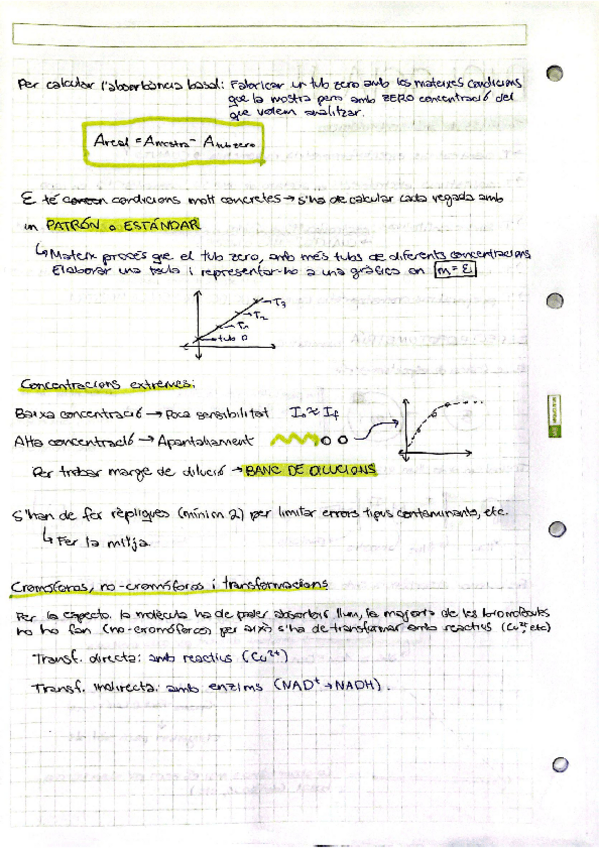 Per calcular l'absorbància basal: Fabricar un tub zero amb les mateixes condicions
que la mostra però amb ZERO concentració del
que volem analitzar.
Areal = Amostra - Atub zero
Ɛ té condicions molt concretes → s'ha de calcular cada vegada amb
un PATRÓN o ESTÁNDAR
↳ Mateix procés que el tub zero, amb més tubs de diferents concentracions
Elaborar una taula i representar-ho a una gràfica on m = Ɛ
T3
T2
T1
tub 0
Concentracions extremes:
Baixa concentració → Poca sensibilitat I₀ ≈ If
Alta concentració → Apantallament
Per trobar marge de dilució → BANC DE DILUCIONS
S'han de fer rèpliques (mínim 2) per limitar errors tipus contaminants, etc.
↳ Fer la mitja
Cromòforos, no-cromòforos i transformacions
Per la espectro. la molècula ha de poder absorbir llum, la majoria de les biomolècules
no ho fan (no-cromòforos) per això s'ha de transformar amb reactius (Cu²⁺, etc)
Transf. directa: amb reactius (Cu²⁺)
Transf. indirecta: amb enzims (NAD⁺ → NADH).